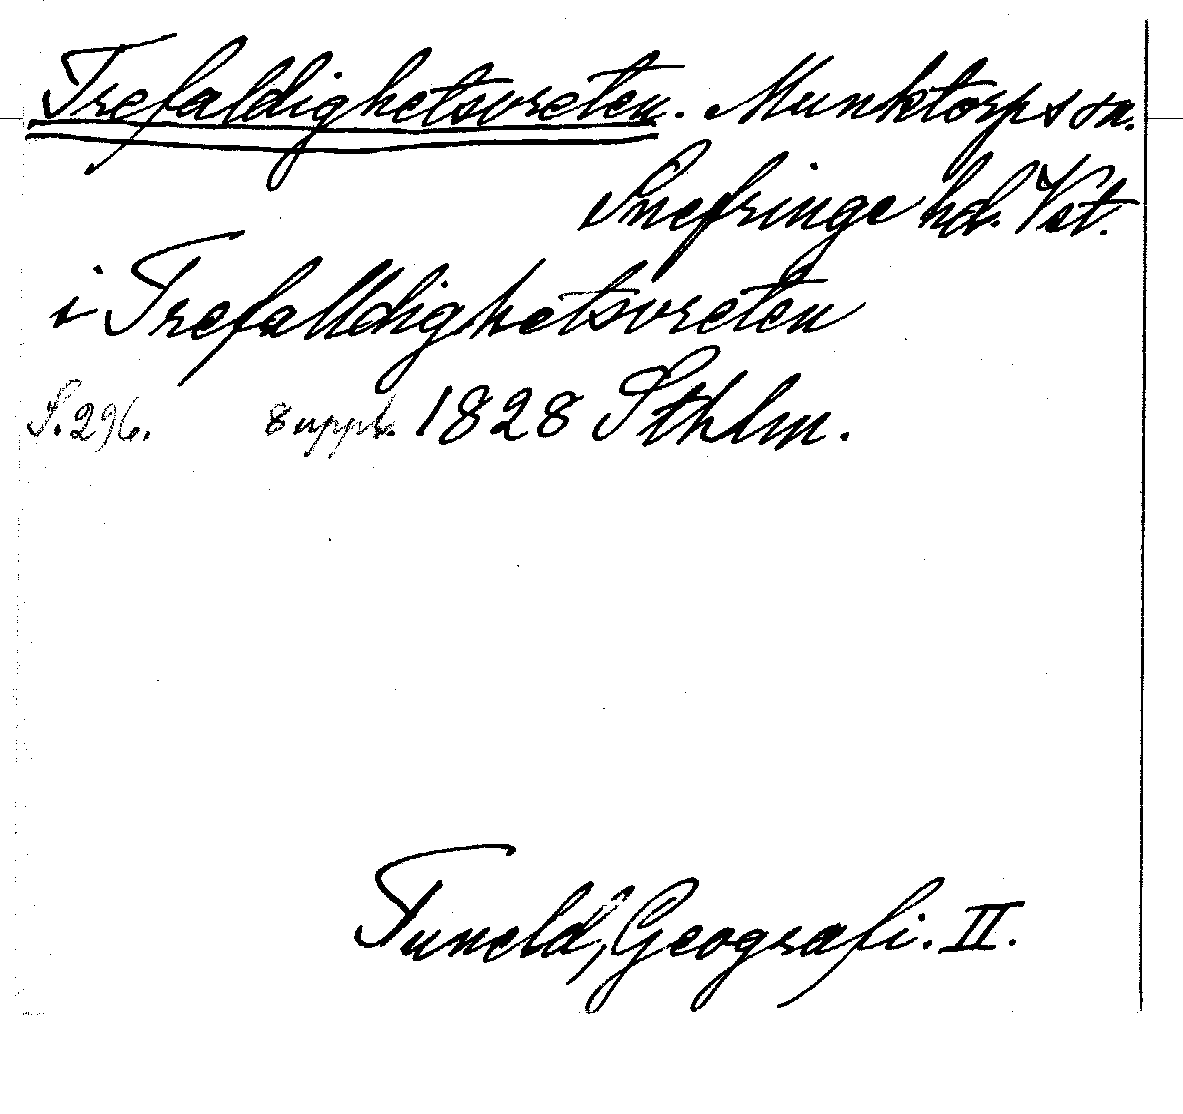 Trefaldighetsvreten. Munktorps sn.
Snefringe hd. Vst.
i Trefalldighetsvreten
S. 296. 8 uppl. 1828 Sthlm.
Tuneld, Geografi. II.